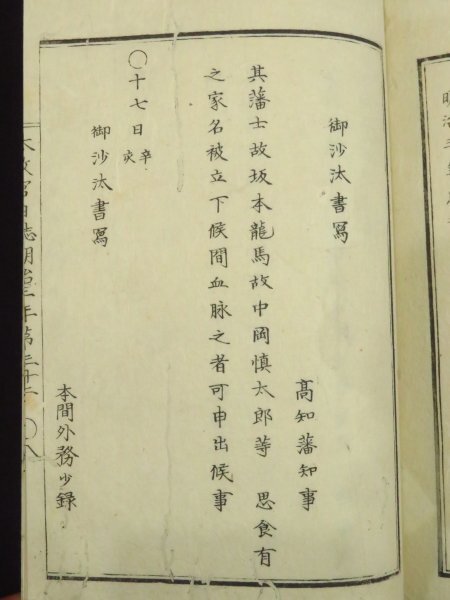 御沙汰書寫
高知藩知事
其藩士故坂本龍馬故中岡慎太郎等 思食有
之家名被立下候間血脈之者可申出候事
〇十七日辛亥
御沙汰書寫
本間外務少録
太政官日誌明治三年第三十二 〇八